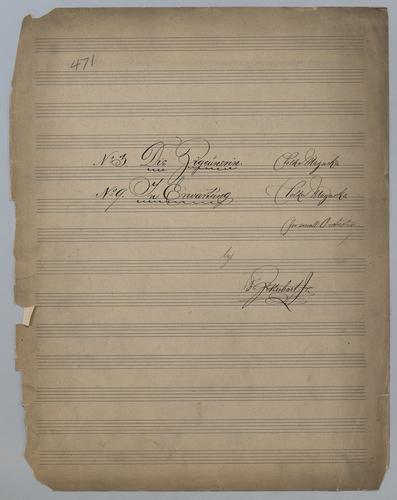 471
No. 3. Die Zigeunerin Polka Mazurka
No. 9. In Erwartung Polka Mazurka
for small Orchestra
by
Jr.